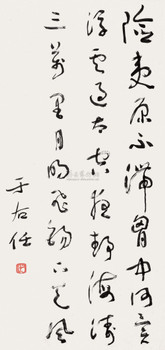 险夷原不滞胸中何异
浮云过太空夜静海涛
三万里月明飞锡下天风
于右任